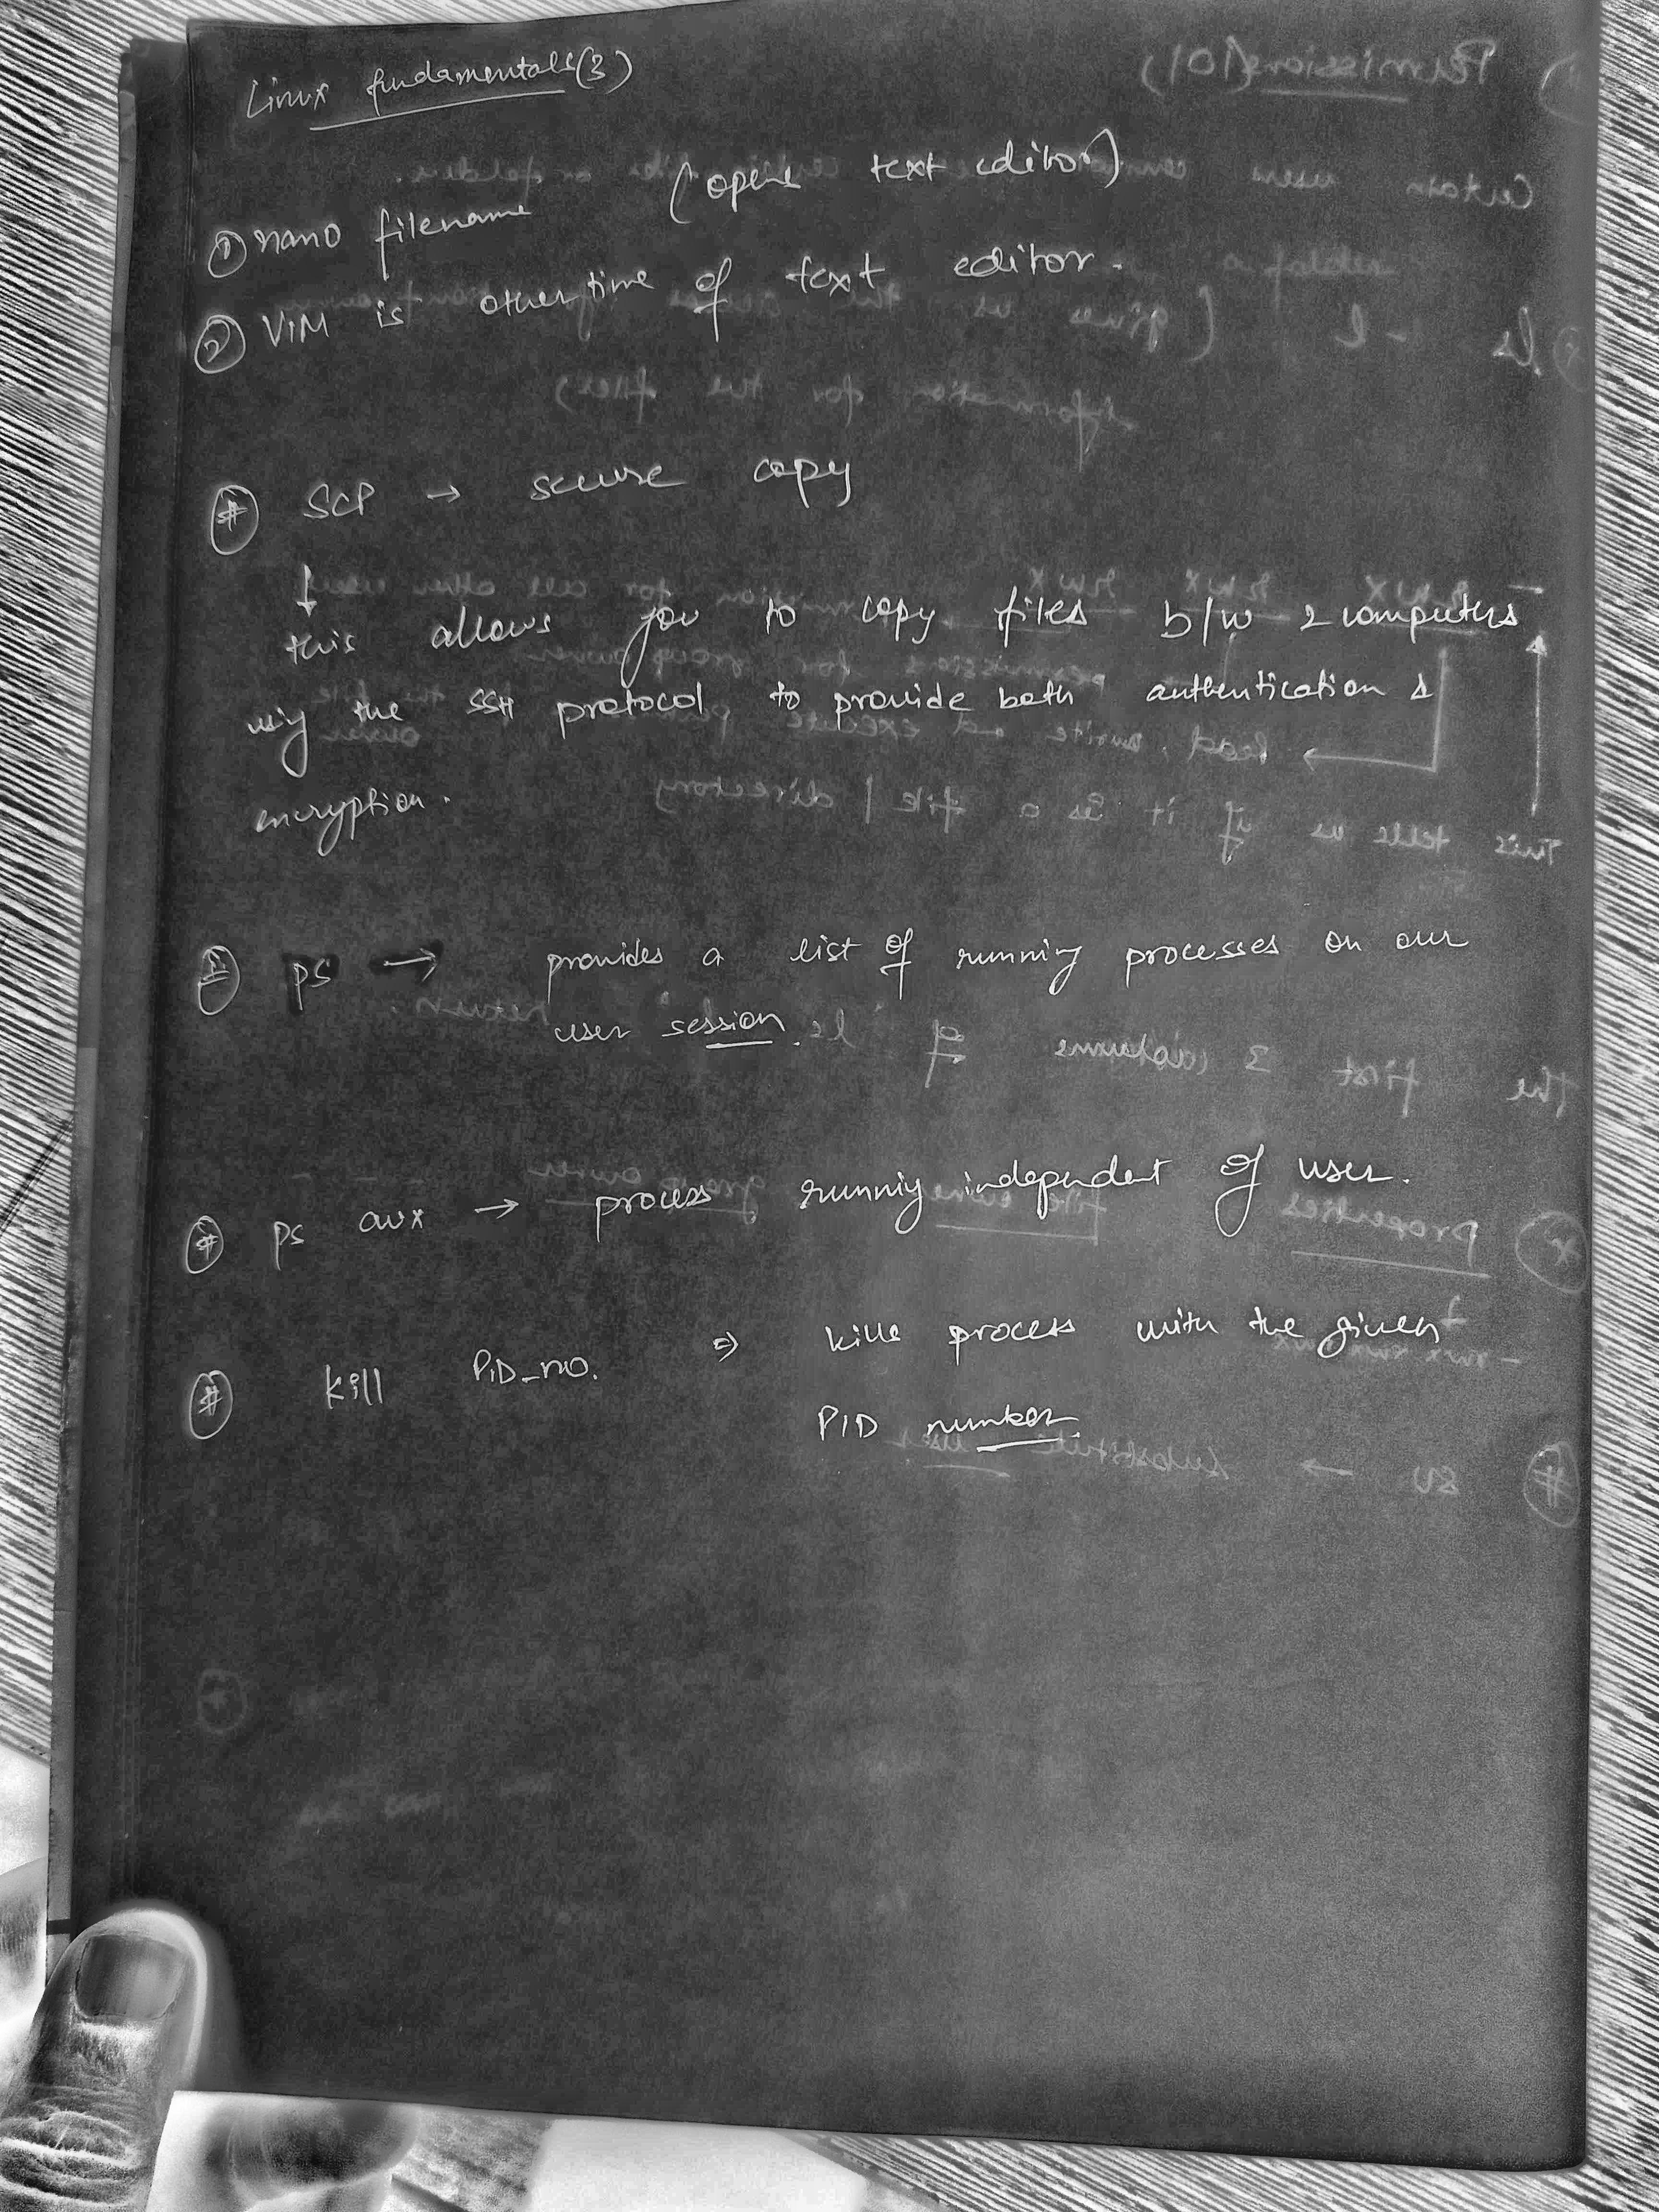 Linux fundamentals(3)
① nano filename (opens text editor)
② VIM is other time of text editor.
# SCP → secure copy
↓
this allows you to copy files b/w 2 computers
using the SSH protocol to provide both authentication &
encryption.
# ps → provides a list of running processes on our
user session.
# ps aux → process running independent of user.
# kill PID_no. ⇒ kills process with the given
PID number